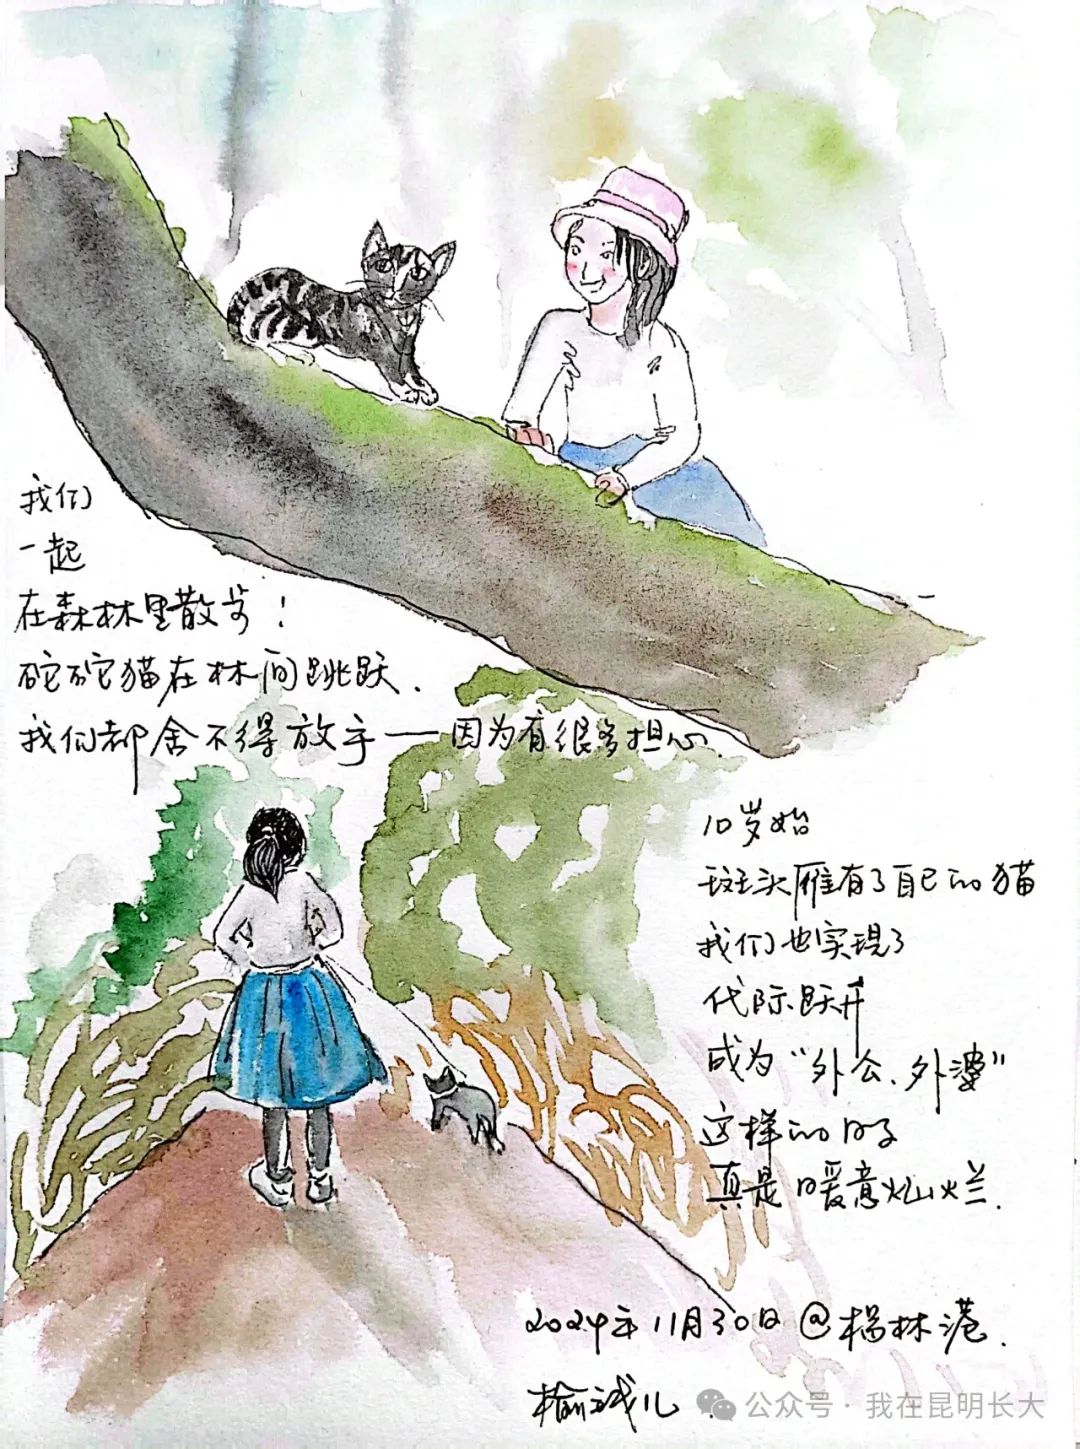 我们
一起
在森林里散步！
砣砣猫在林间跳跃．
我们都舍不得放手——因为有很多担心．
10岁始
斑头雁有了自己的猫
我们也实现了
代际跃升
成为“外公、外婆”
这样的日子
真是暖意灿烂．
2024年11月30日@杨林港．
榆诚儿
公众号·我在昆明长大